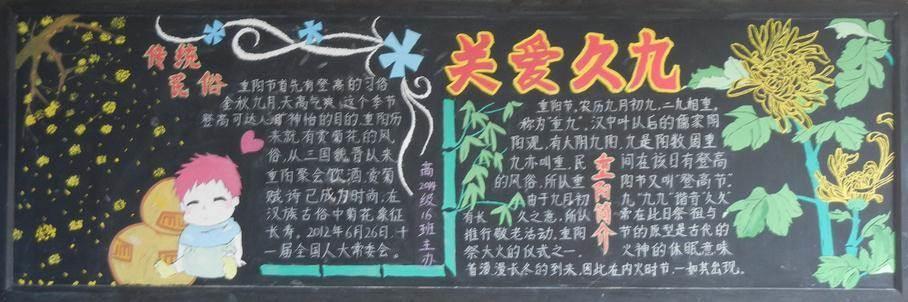 传统
民俗
重阳节首先有登高的习俗
金秋九月,天高气爽,这个季节
登高可达人 神怡的目的.重阳历
来就有赏菊花的风
俗,从三国魏晋以来
重阳聚会饮酒,赏菊
赋诗已成为时尚,在
汉族古俗中菊花象征
长寿。2012年6月26日,十
一届全国人大常委会。
高 级16班主办
关爱久九
重阳节,农历九月初九,二九相重,
称为"重九",汉中叶以后的儒家阴
阳观,有六阴九阳,九是阳数固重
九亦叫重,民间在该日有登高
的风俗,所以重阳节又叫"登高节".
由于九月初九"九九"谐音"久久"
有长久之意,所以常在此日祭祖与
推行敬老活动,重阳节的原型是古代的
祭大火的仪式之一.火神的休眠意味
着漫漫长冬的到来,因此在内火时节,一如其出现.
重阳简介